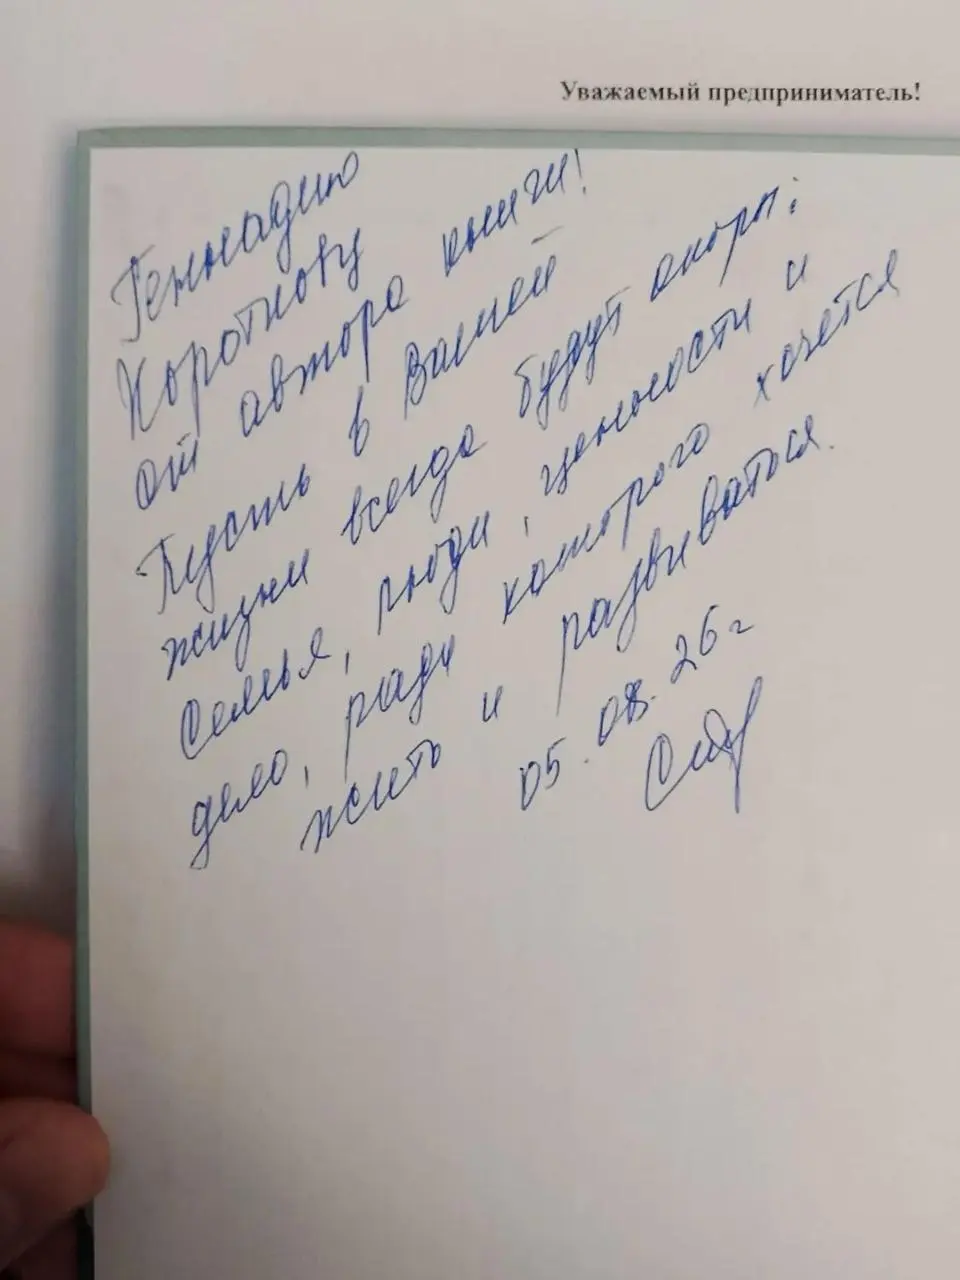 Уважаемый предприниматель!
Геннадию
Короткову
от автора книги!
Пусть в Вашей
жизни всегда будут опоры:
Семья, люди, ценности и
дело, ради которого хочется
жить и развиваться.
05.08.26 г